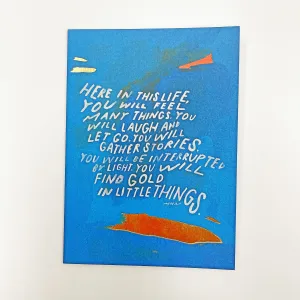 HERE IN THIS LIFE,
YOU WILL FEEL
MANY THINGS. YOU
WILL LAUGH AND
LET GO. YOU WILL
GATHER STORIES.
YOU WILL BE INTERRUPTED
BY LIGHT. YOU WILL
FIND GOLD
IN LITTLE THINGS.